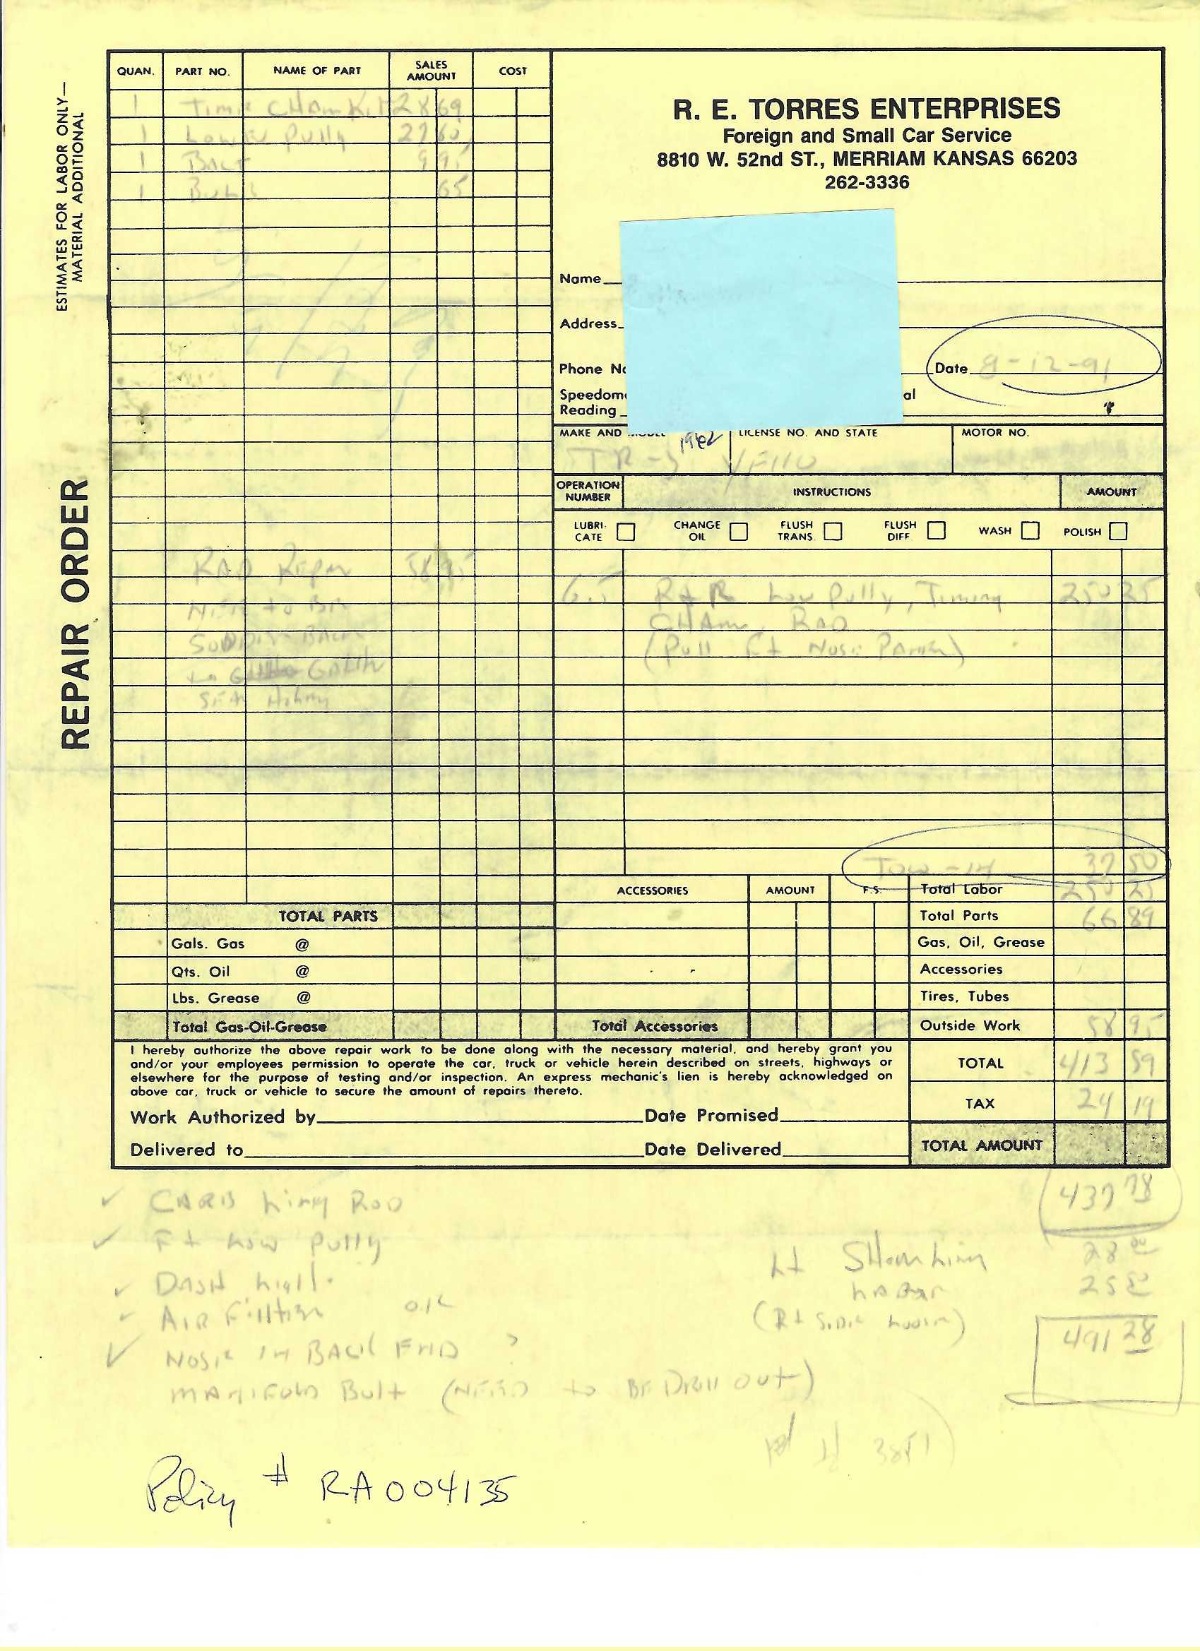 QUAN. PART NO. NAME OF PART SALES AMOUNT COST
1 28 69
1 Lower Pully 27 60
1 9 95
1 65
ESTIMATES FOR LABOR ONLY—
MATERIAL ADDITIONAL
REPAIR ORDER
R. E. TORRES ENTERPRISES
Foreign and Small Car Service
8810 W. 52nd ST., MERRIAM KANSAS 66203
262-3336
Name
Address
Phone No
Date 8-12-91
Speedom al
Reading
MAKE AND MODEL 1962 LICENSE NO. AND STATE MOTOR NO.
TR-3 YELLO
OPERATION NUMBER INSTRUCTIONS AMOUNT
LUBRI-CATE CHANGE OIL FLUSH TRANS. FLUSH DIFF WASH POLISH
RAD Repair 58 95
NEED to BE
6.5 R+R Low Pully, Timing 250 25
CHAin, RAD
(Pull Ft Nose Panel)
Tow-in 37 50
ACCESSORIES AMOUNT F.S. Total Labor 250 25
TOTAL PARTS Total Parts 66 89
Gals. Gas @ Gas, Oil, Grease
Qts. Oil @ Accessories
Lbs. Grease @ Tires, Tubes
Total Gas-Oil-Grease Total Accessories Outside Work 58 95
I hereby authorize the above repair work to be done along with the necessary material, and hereby grant you
and/or your employees permission to operate the car, truck or vehicle herein described on streets, highways or
elsewhere for the purpose of testing and/or inspection. An express mechanic's lien is hereby acknowledged on
above car, truck or vehicle to secure the amount of repairs thereto.
TOTAL 413 59
TAX 24 19
Work Authorized by Date Promised
Delivered to Date Delivered TOTAL AMOUNT
437 78
✓ CARB Rod
✓ Ft Low Pully
✓ DASH Light
✓ AIR Fillter OIL
✓ NOSIE IN BACK END ?
MANIFOLD Bolt (NEED to BE Drill out)
Lt 28 00
25 50
(Rt Side)
491 28
Policy # RA004135